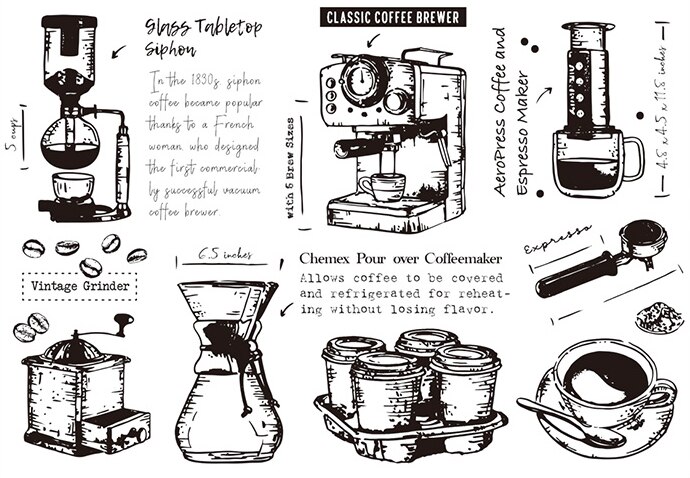 Glass Tabletop
Siphon
In the 1830s siphon
coffee became popular
thanks to a French
woman who designed
the first commercial-
ly successful vacuum
coffee brewer.
5 cups
CLASSIC COFFEE BREWER
with 5 Brew Sizes
AeroPress Coffee and
Espresso Maker
4.5 x 4.5 x 11.5 inches
Vintage Grinder
6.5 inches
Chemex Pour over Coffeemaker
Allows coffee to be covered
and refrigerated for reheat-
ing without losing flavor.
Expresso